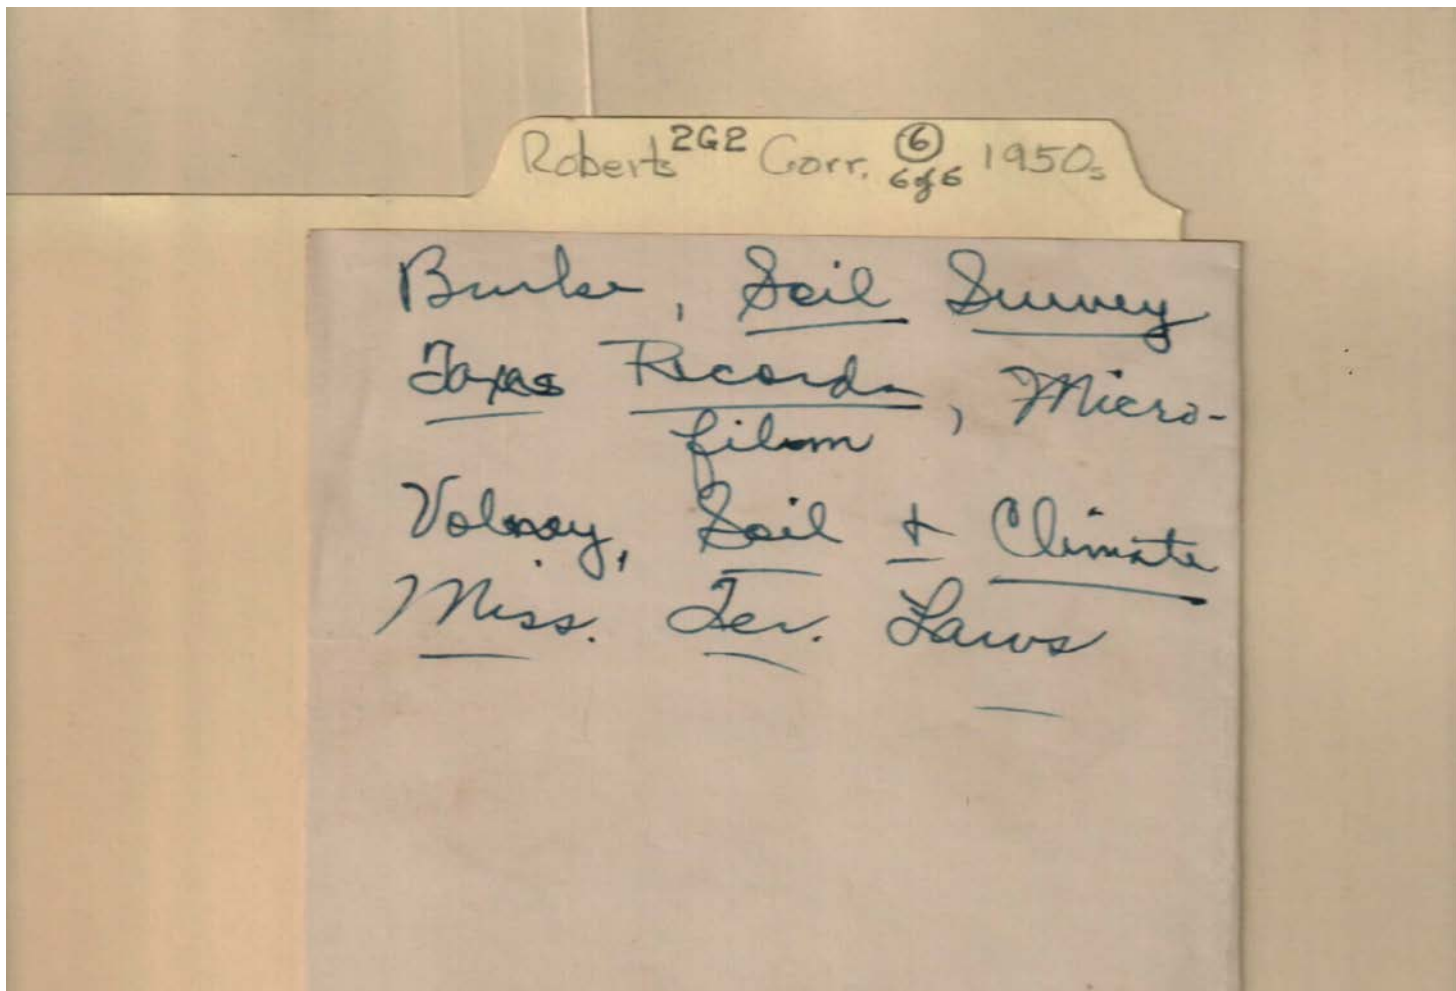 Roberts 2G2 Corr. 6 6 of 6 1950s
Burke, Soil Survey
Taxes Records, Micro-
film
Volney, Soil + Climate
Miss. Ter. Laws